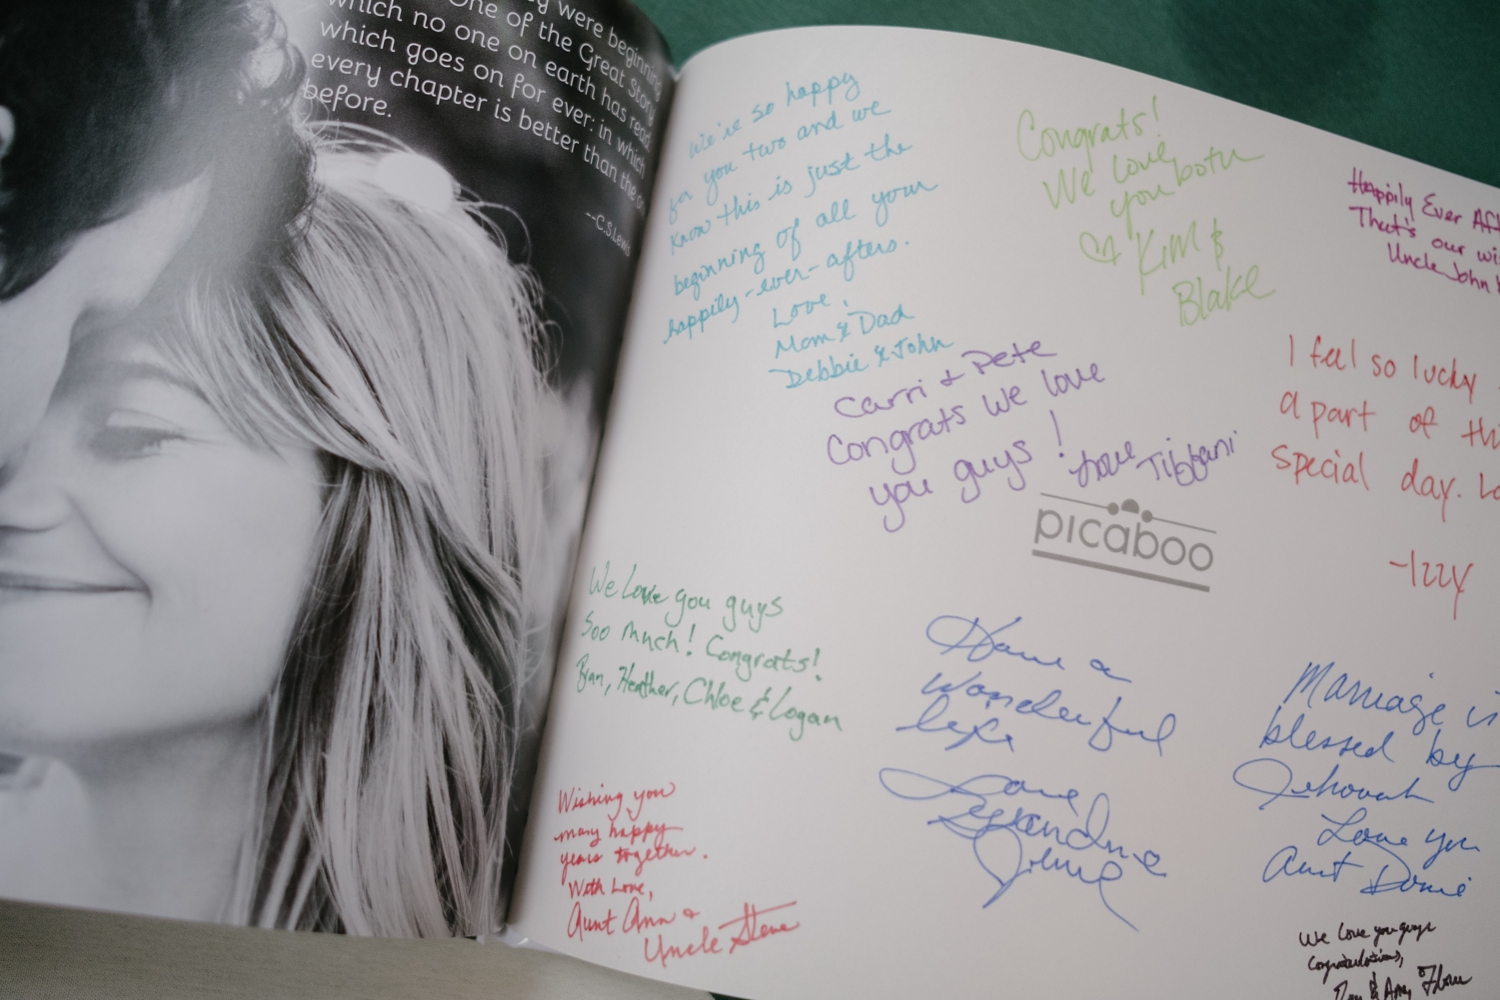 were beginning
One of the Great Story
which no one on earth has read
which goes on for ever: in which
every chapter is better than the
before.
--C.S.Lewis
We're so happy
for you two and we
know this is just the
beginning of all your
happily-ever-afters.
Love,
Mom & Dad
Debbie & John
Congrats!
We love
you both
♡ Kim &
Blake
Happily Ever
That's our
Uncle John
Carri + Pete
Congrats we love
you guys! Love Tiffani
I feel so lucky
a part of
special day.
-Izzy
picaboo
We love you guys
Soo much! Congrats!
Heather, Chloe & Logan
Have a
wonderful
life
Love
Grandma
Marriage is
blessed by
Jehovah
Love you
Aunt
Wishing you
many happy
years together.
With Love,
Aunt Ann &
Uncle Steve
We love you guys
Congratulations,
& Amy